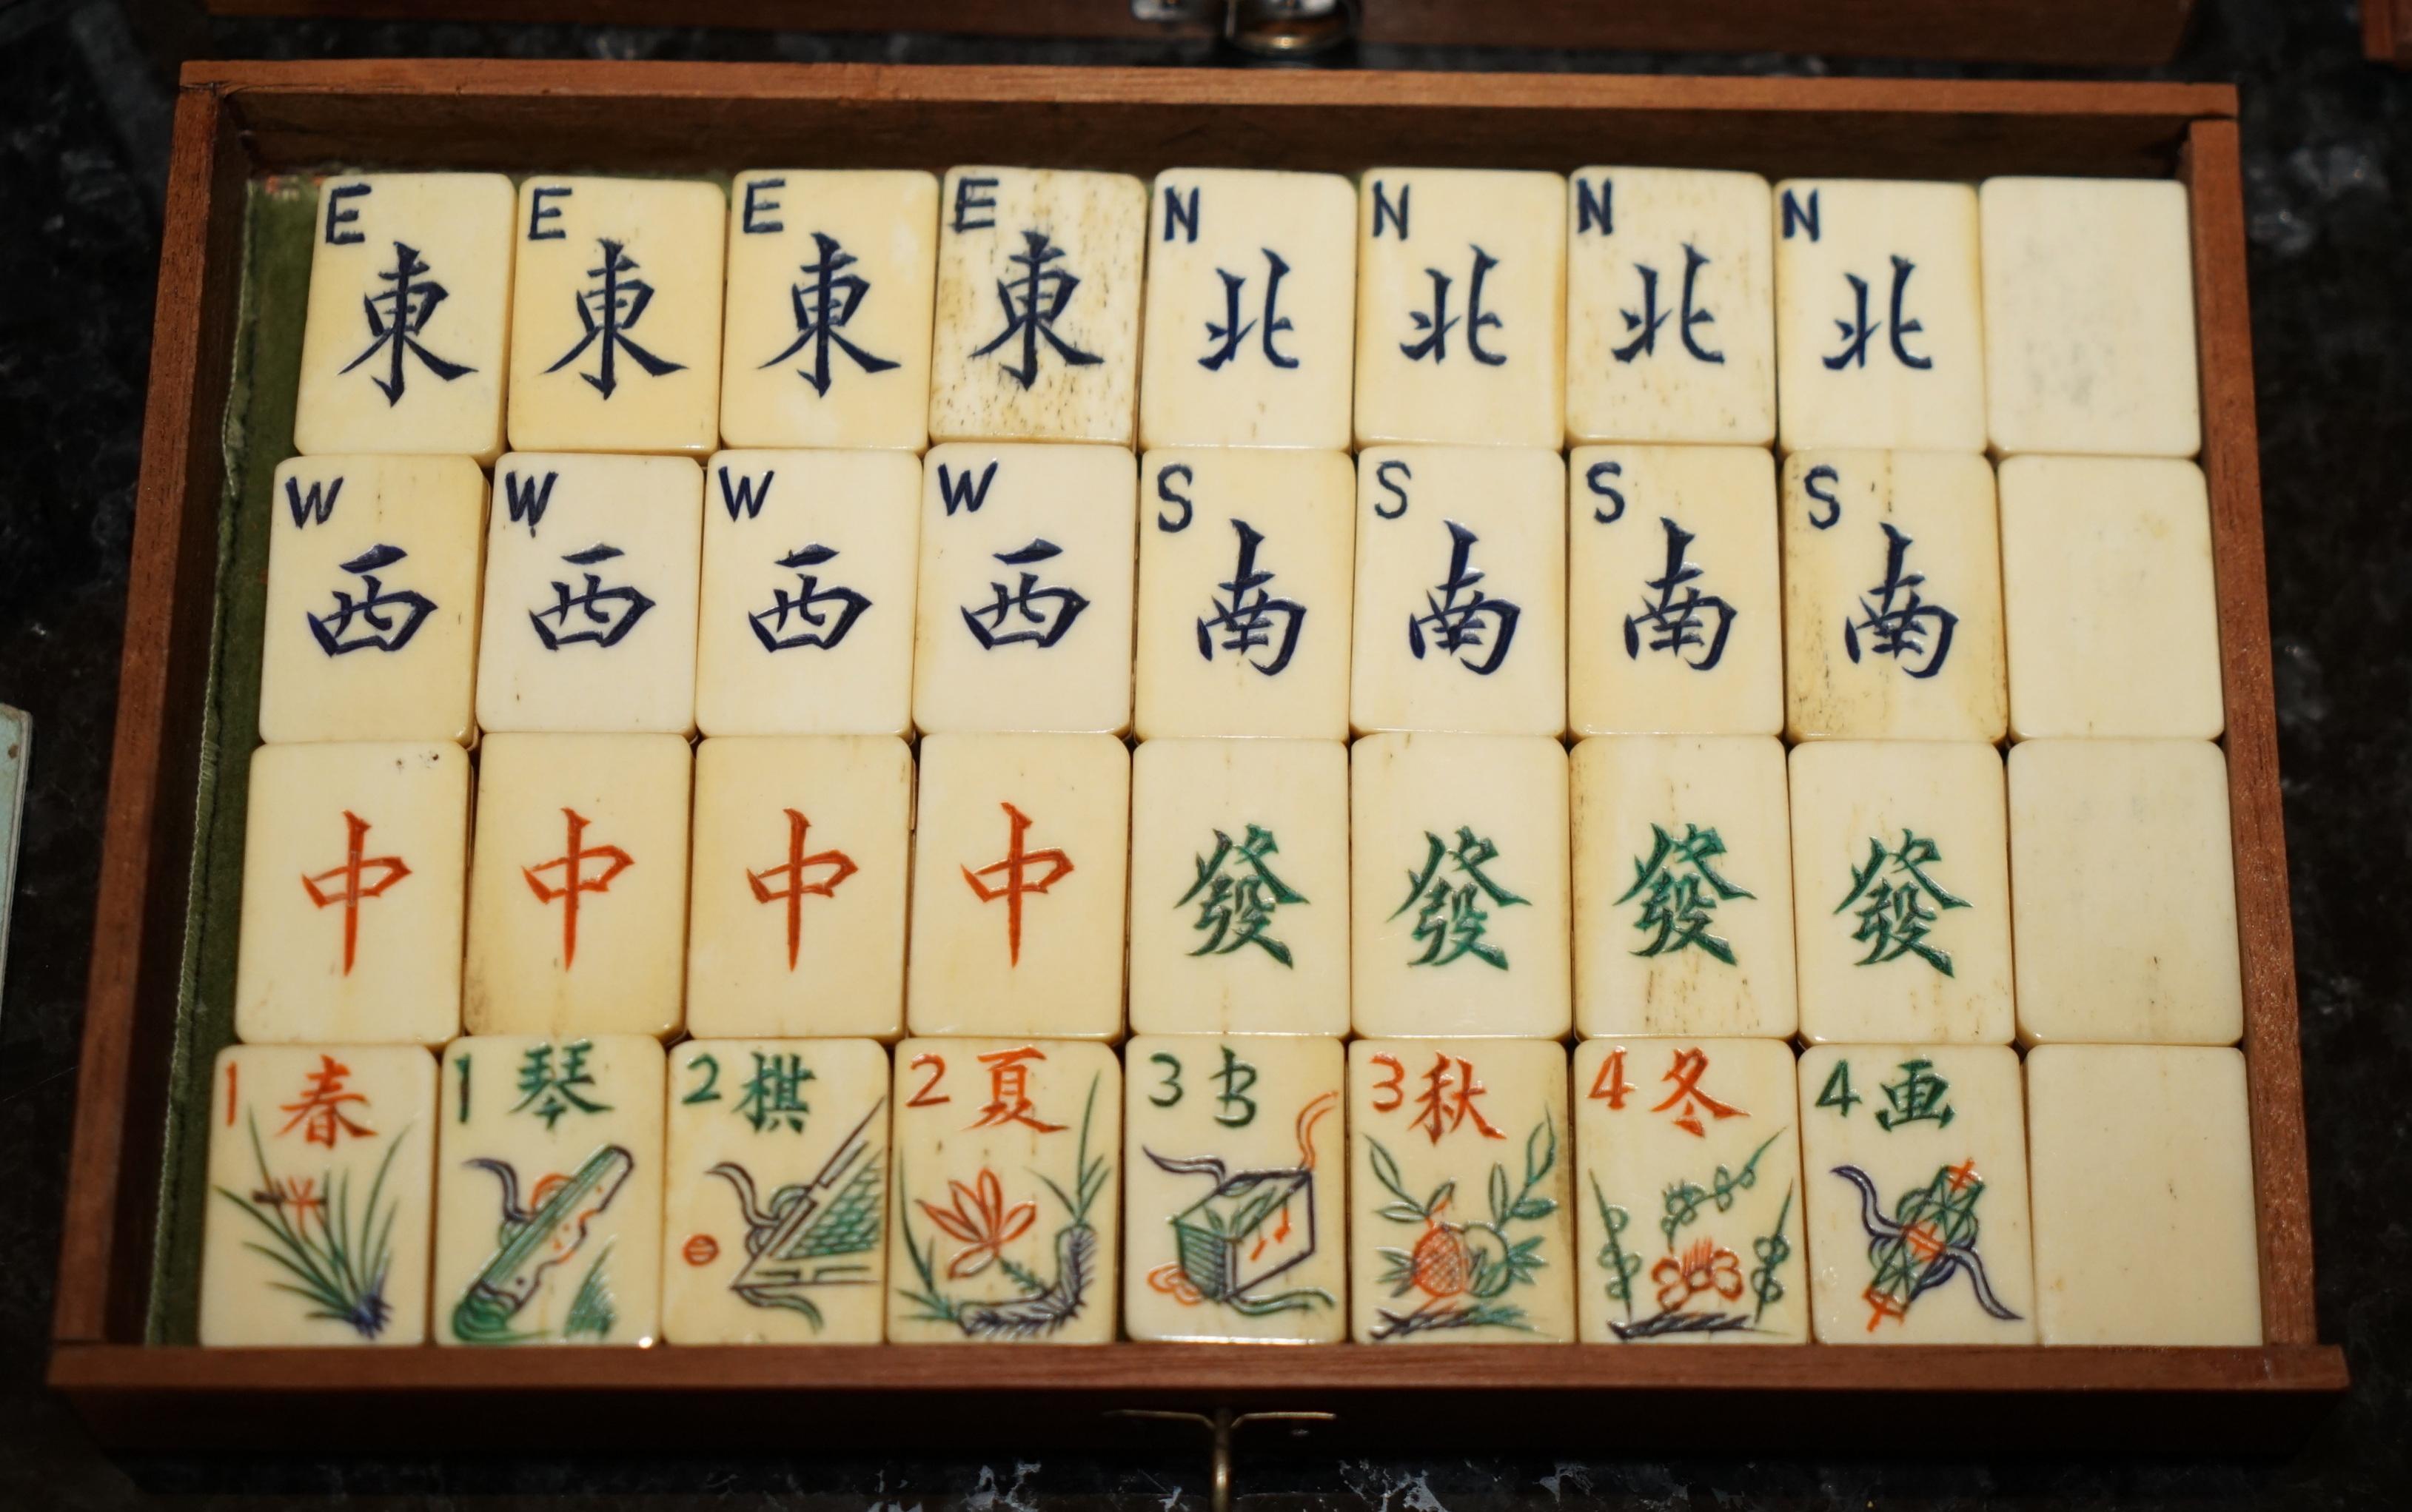 E E E E N N N N
東 東 東 東 北 北 北 北
W W W W S S S S
西 西 西 西 南 南 南 南
中 中 中 中 發 發 發 發
1 春 1 琴 2 棋 2 夏 3 书 3 秋 4 冬 4 画